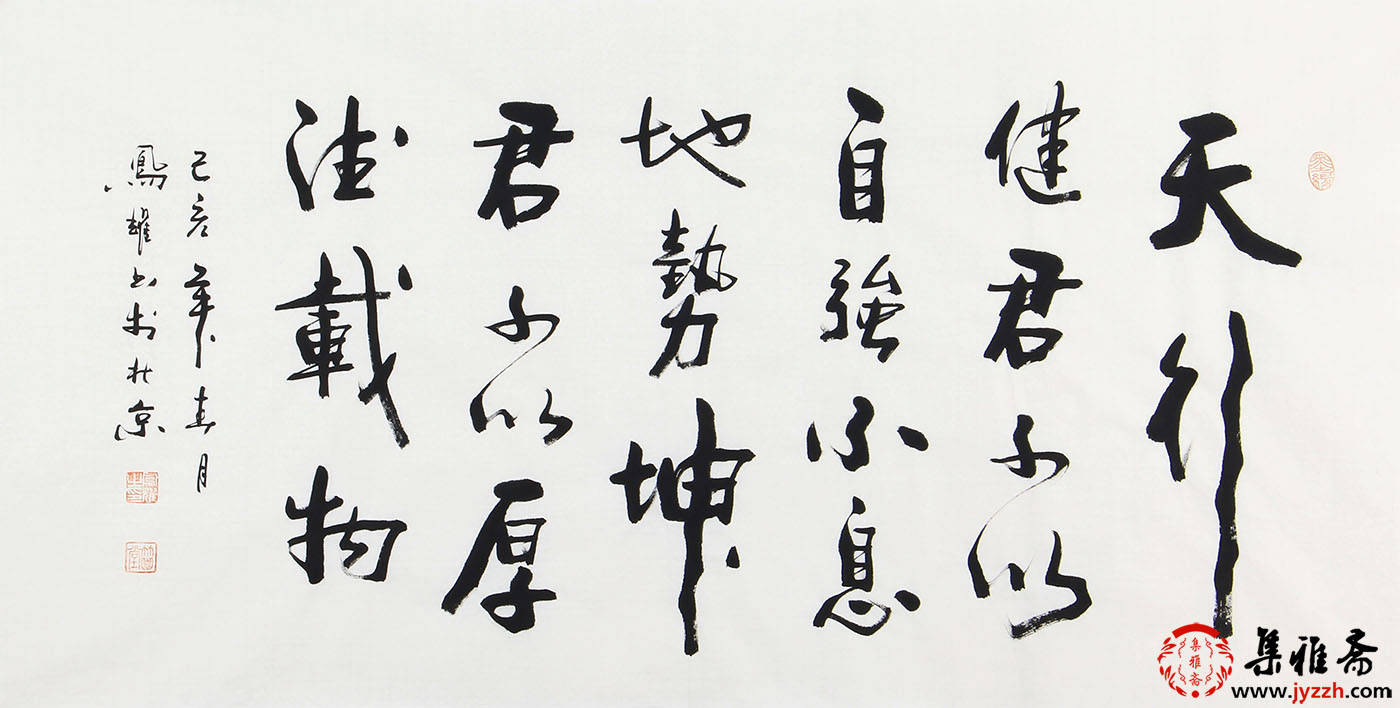 天行
健君子以
自強不息
地勢坤
君子以厚
德載物
己亥年春月
鳳耀书於北京
集雅斋
集雅斋
www.jyzzh.com